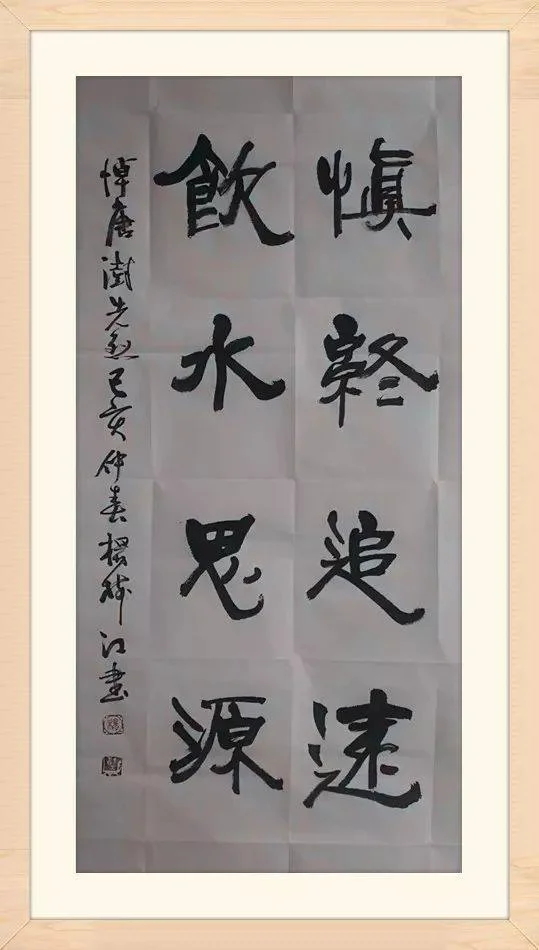 慎終追遠
飲水思源
悼唐澍先烈己亥仲春楊
江書